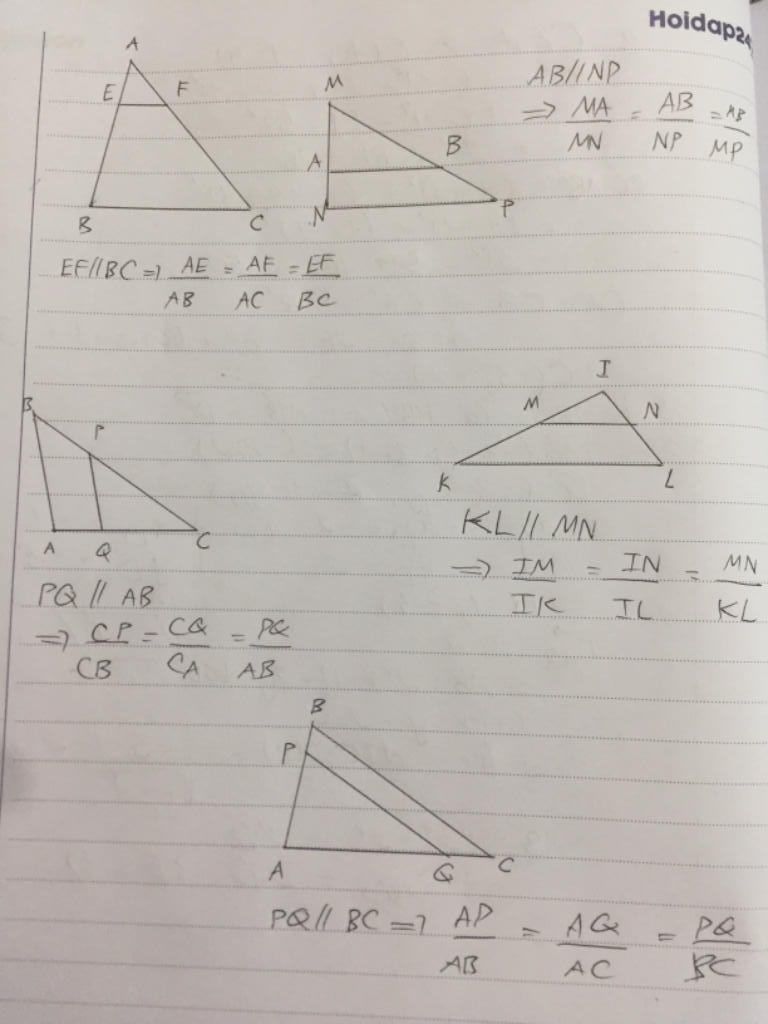 Hoidap24
A
E F
B C
M
A B
N P
AB//NP
=> MA/MN = AB/NP = MB/MP
EF//BC => AE/AB = AF/AC = EF/BC
B
P
A Q C
I
M N
K L
KL // MN
=> IM/IK = IN/IL = MN/KL
PQ // AB
=> CP/CB = CQ/CA = PQ/AB
B
P
A Q C
PQ // BC => AP/AB = AQ/AC = PQ/BC